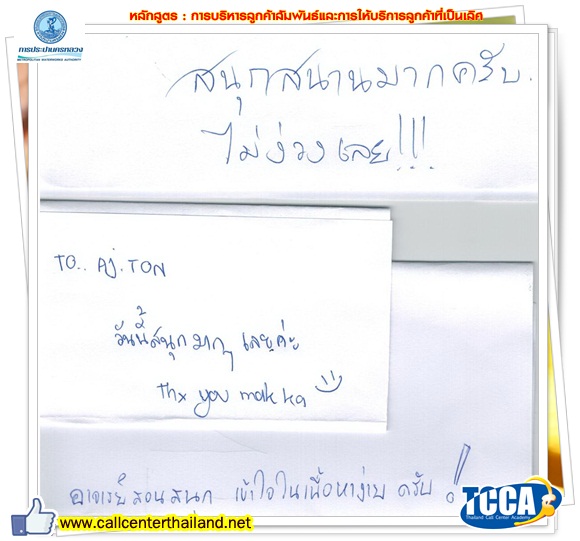 หลักสูตร : การบริหารลูกค้าสัมพันธ์และการให้บริการลูกค้าที่เป็นเลิศ
การประปานครหลวง
METROPOLITAN WATERWORKS AUTHORITY
สนุกสนานมากครับ.
ไม่ง่วงเลย!!!
TO.. AJ. TON
วันนี้สนุกมากๆ เลยค่ะ
Thx you mak ka
อาจารย์สอนสนุก เข้าใจในเนื้อหาง่าย ครับ!
TCCA
Thailand Call Center Academy
www.callcenterthailand.net